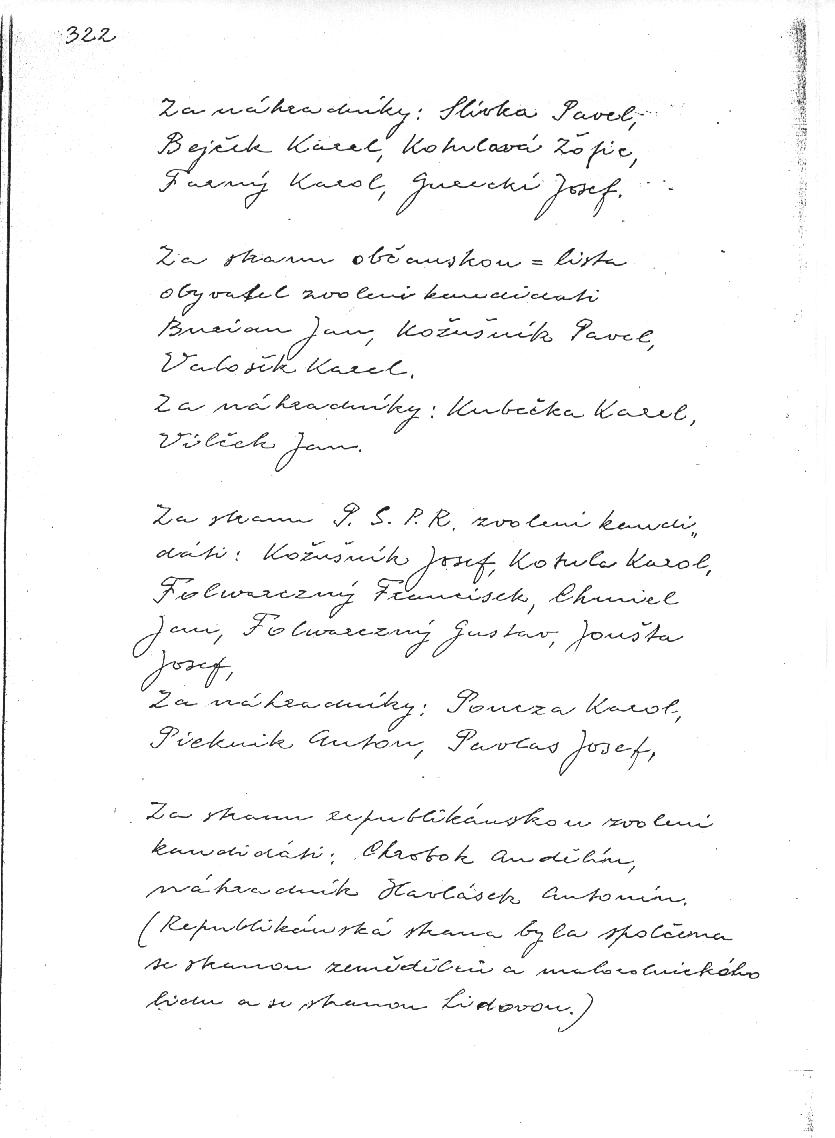 322
Za náhradníky: Slivka Pavel,
Bejček Karel, Kotulová Žofie,
Farný Karol, Gurecki Josef.
Za stranu občanskou = lista
obyvatel zvoleni kandidati
Burian Jan, Kožušník Pavel,
Valošík Karel.
Za náhradníky: Kubečka Karel,
Vilček Jan.
Za stranu P. S. P. R. zvoleni kandi„
dáti: Kožušník Josef, Kotula Karol,
Folwarczný Francisek, Chmiel
Jan, Folwarczný Gustav, Joušta
Josef,
Za náhradníky: Poncza Karol,
Pieknik Anton, Pavlas Josef,
Za stranu republikánskou zvoleni
kandidáti: Chrobok Andělín,
náhradník Havlásek Antonín.
(Republikánská strana byla spolčena
se stranou zemědělců a malorolnického
lidu a se stranou Lidovou.)